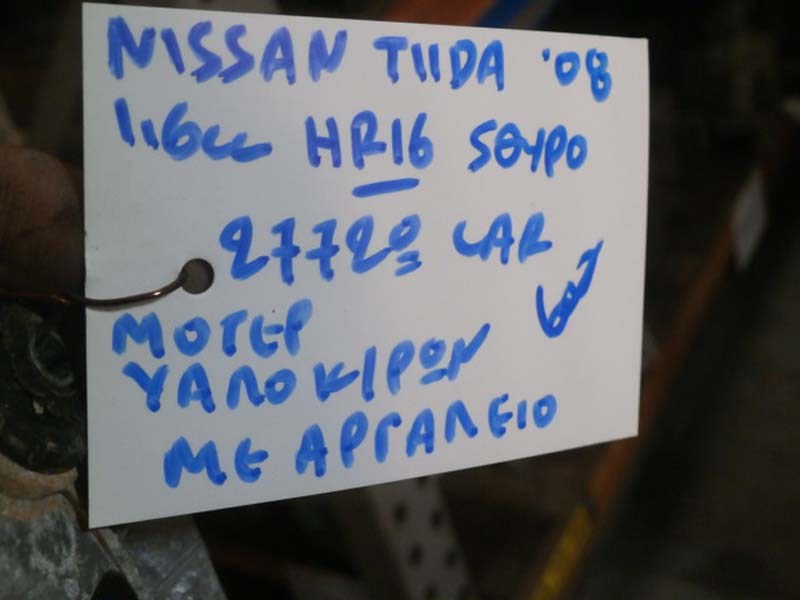 NISSAN TIIDA '08
1.6cc HR16 5ΘΥΡΟ
2772º CAR
ΜΟΤΕΡ
ΥΑΛΟΚΙΡΩΝ
ΜΕ ΑΡΓΑΛΕΙΟ